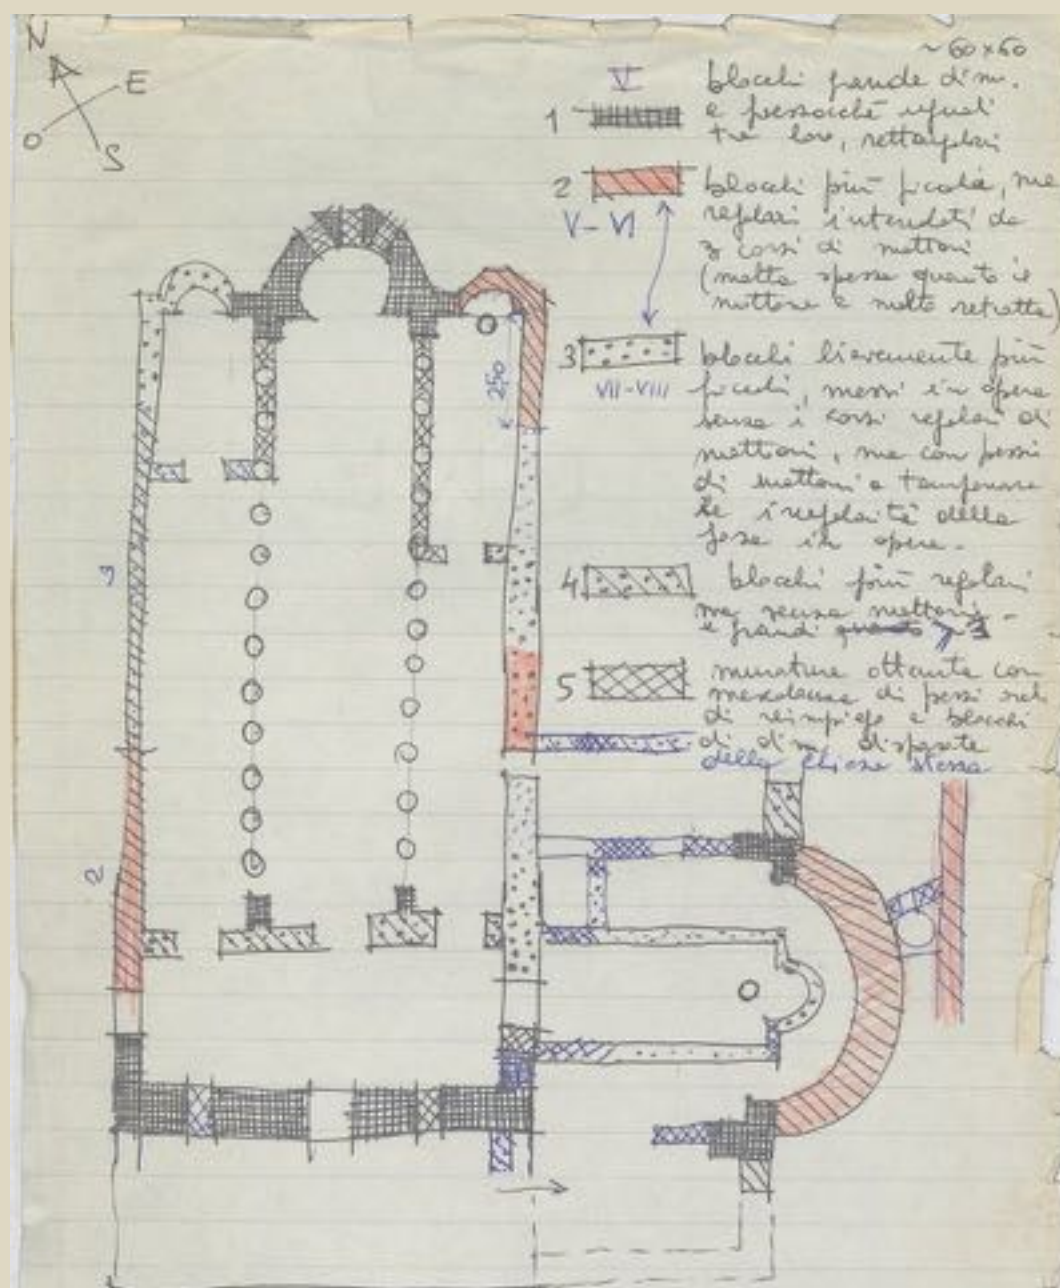 N
E
O
S
~ 60 x 60
V
1
blocchi grande dim.
e pressoché uguali
tra loro, rettangolari
2
V - VI
blocchi più piccoli, ma
regolari intervallati da
3 corsi di mattoni
(malta spessa quanto il
mattone e molto retratta)
3
VII - VIII
blocchi lievemente più
piccoli, messi in opera
senza i corsi regolari di
mattoni, ma con pezzi
di mattoni a tamponare
le irregolarità della
posa in opera.
4
blocchi più regolari
ma senza mattoni -
e grandi quanto 3
5
murature ottenute con
mescolanza di pezzi
di reimpiego e blocchi
di dim. disparate
della chiesa stessa
250
3
2